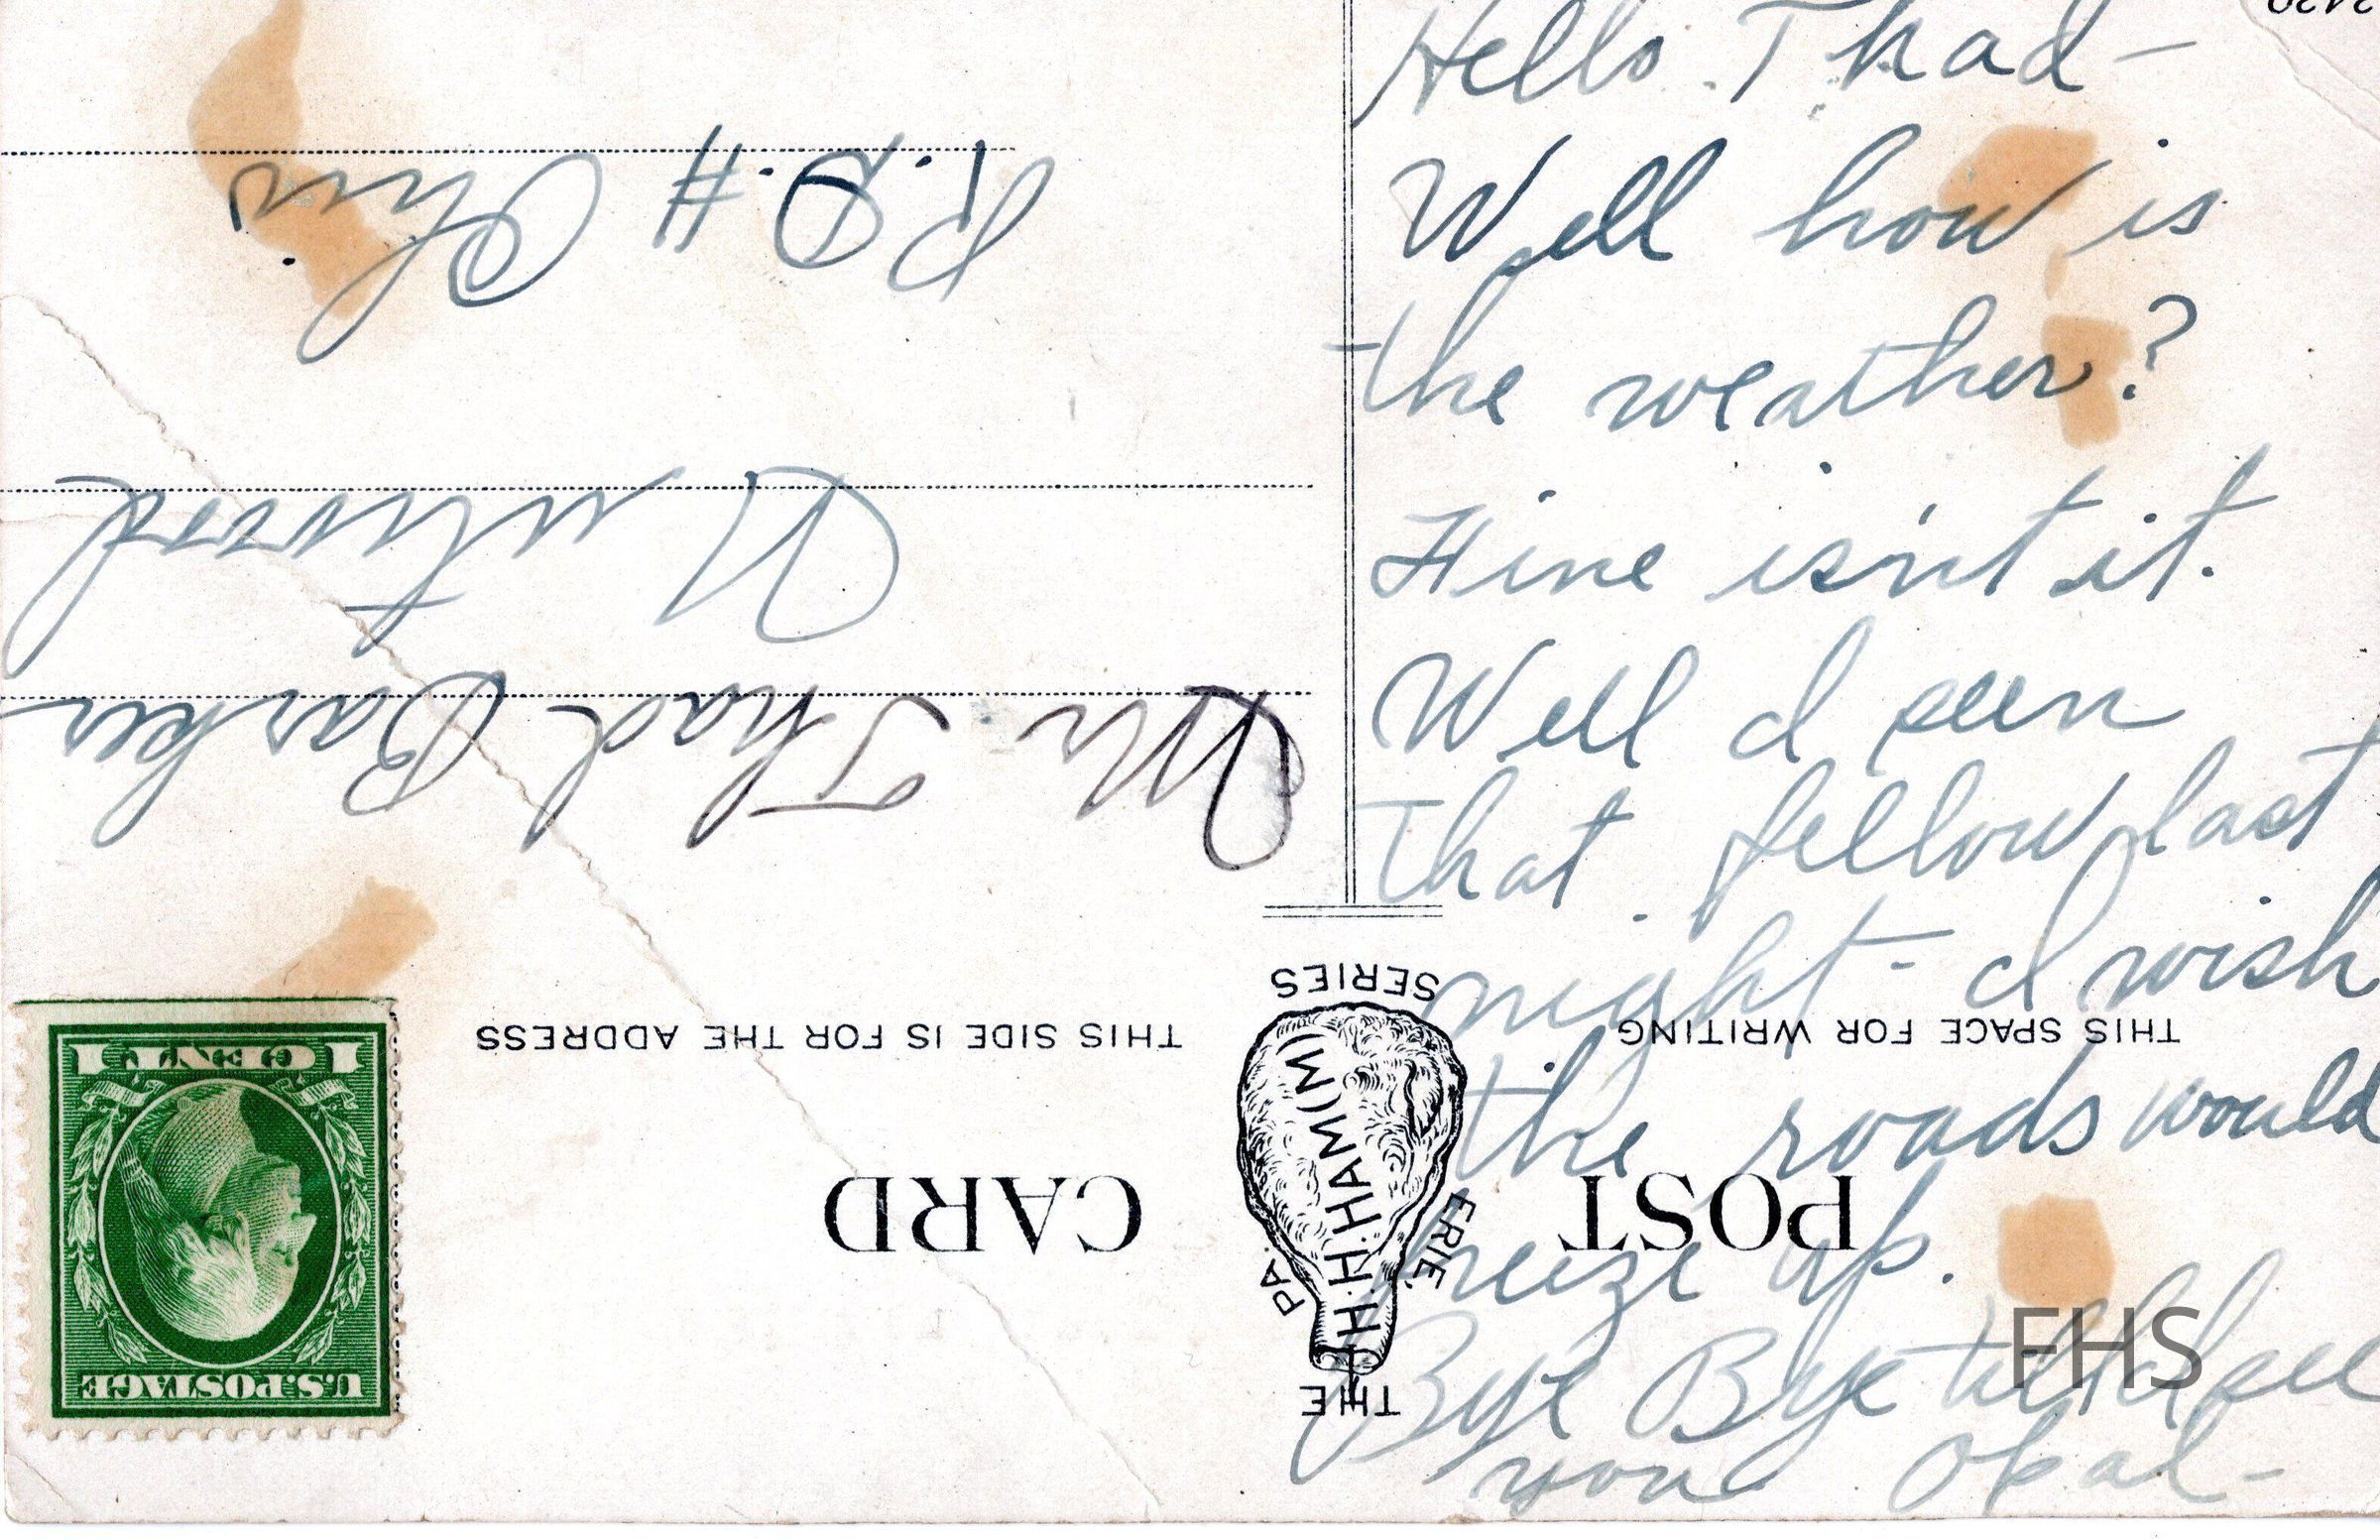 Hello Thad-
Well how is
the weather?
Fine isn't it.
Well I seen
that fellow last
night - I wish
the roads would
freeze up.
Bye Bye till I see
you Opal-
POST CARD
THIS SPACE FOR WRITING
THIS SIDE IS FOR THE ADDRESS
THE H.H.HAM(M)
ERIE, PA.
SERIES
U.S.POSTAGE
1 CENT 1
Mr Thad Barker
R.D. #
Ohio
2420
FHS